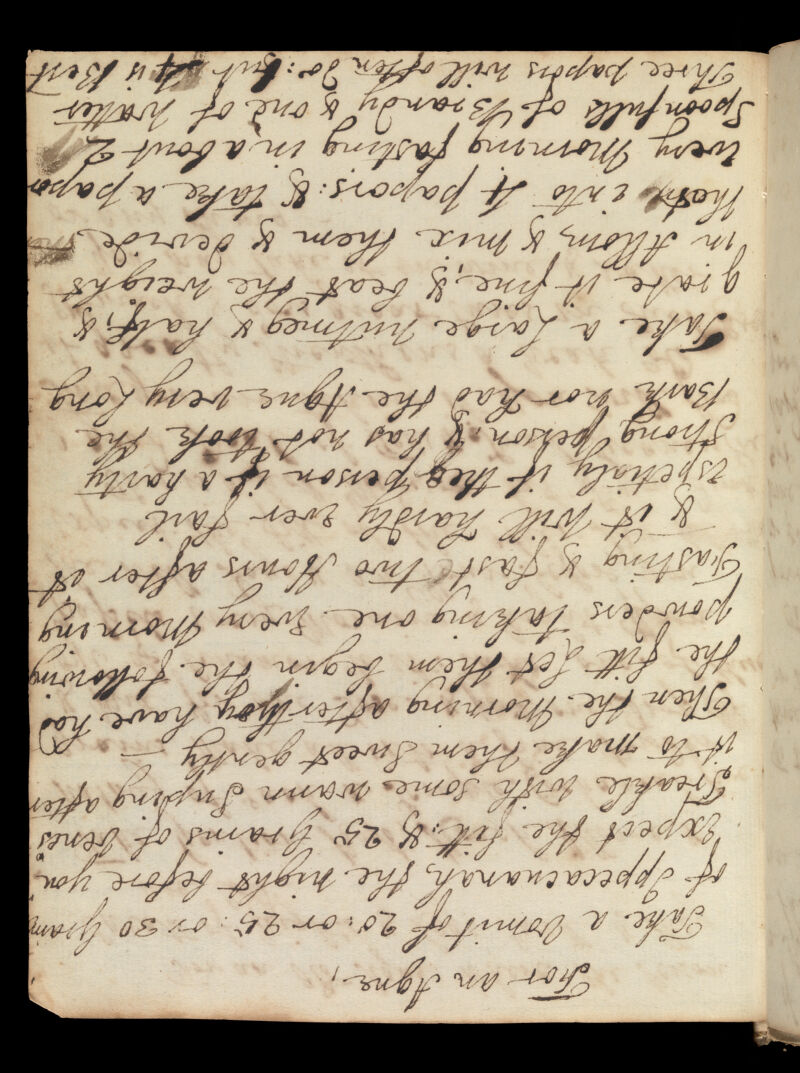 For an Ague,
Take a Vomit of 20: or 25: or 30 grains
of Ippecacuanah, the night before you
Expect the fitt: & 25 Grains of Venes
Treakle with some warm Suping after
it to make them Sweet gently —
Then the Morning after they have had
the fitt Let them begin the following
powders taking one Every Morning
Fasting & fast two Hours after it
& it will hardly Ever fail
Espetialy if the person is a harty
strong person & has not took the
Bark nor had the Ague very Long
Take a Large nutmeg & half, &
grate it fine, & beat the weight
in Allom & mix them & devide
them into 4 papors: & take a papor
every Morning fasting in about 2
Spoonfulls of Brandy & one of watter
Three papors will often Do: but 4 is Best